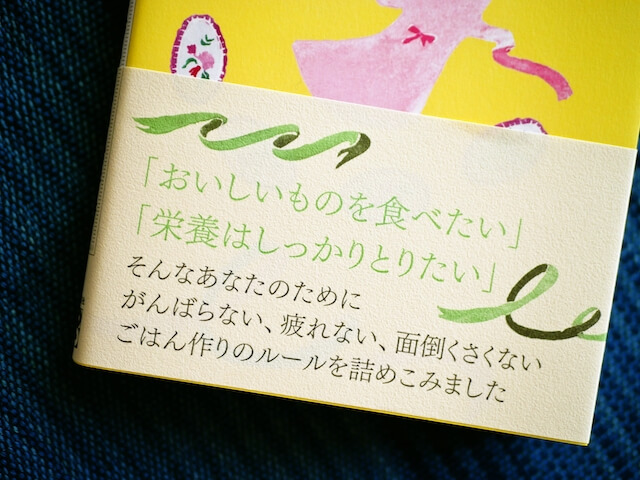 「おいしいものを食べたい」
「栄養はしっかりとりたい」
そんなあなたのために
がんばらない、疲れない、面倒くさくない
ごはん作りのルールを詰めこみました